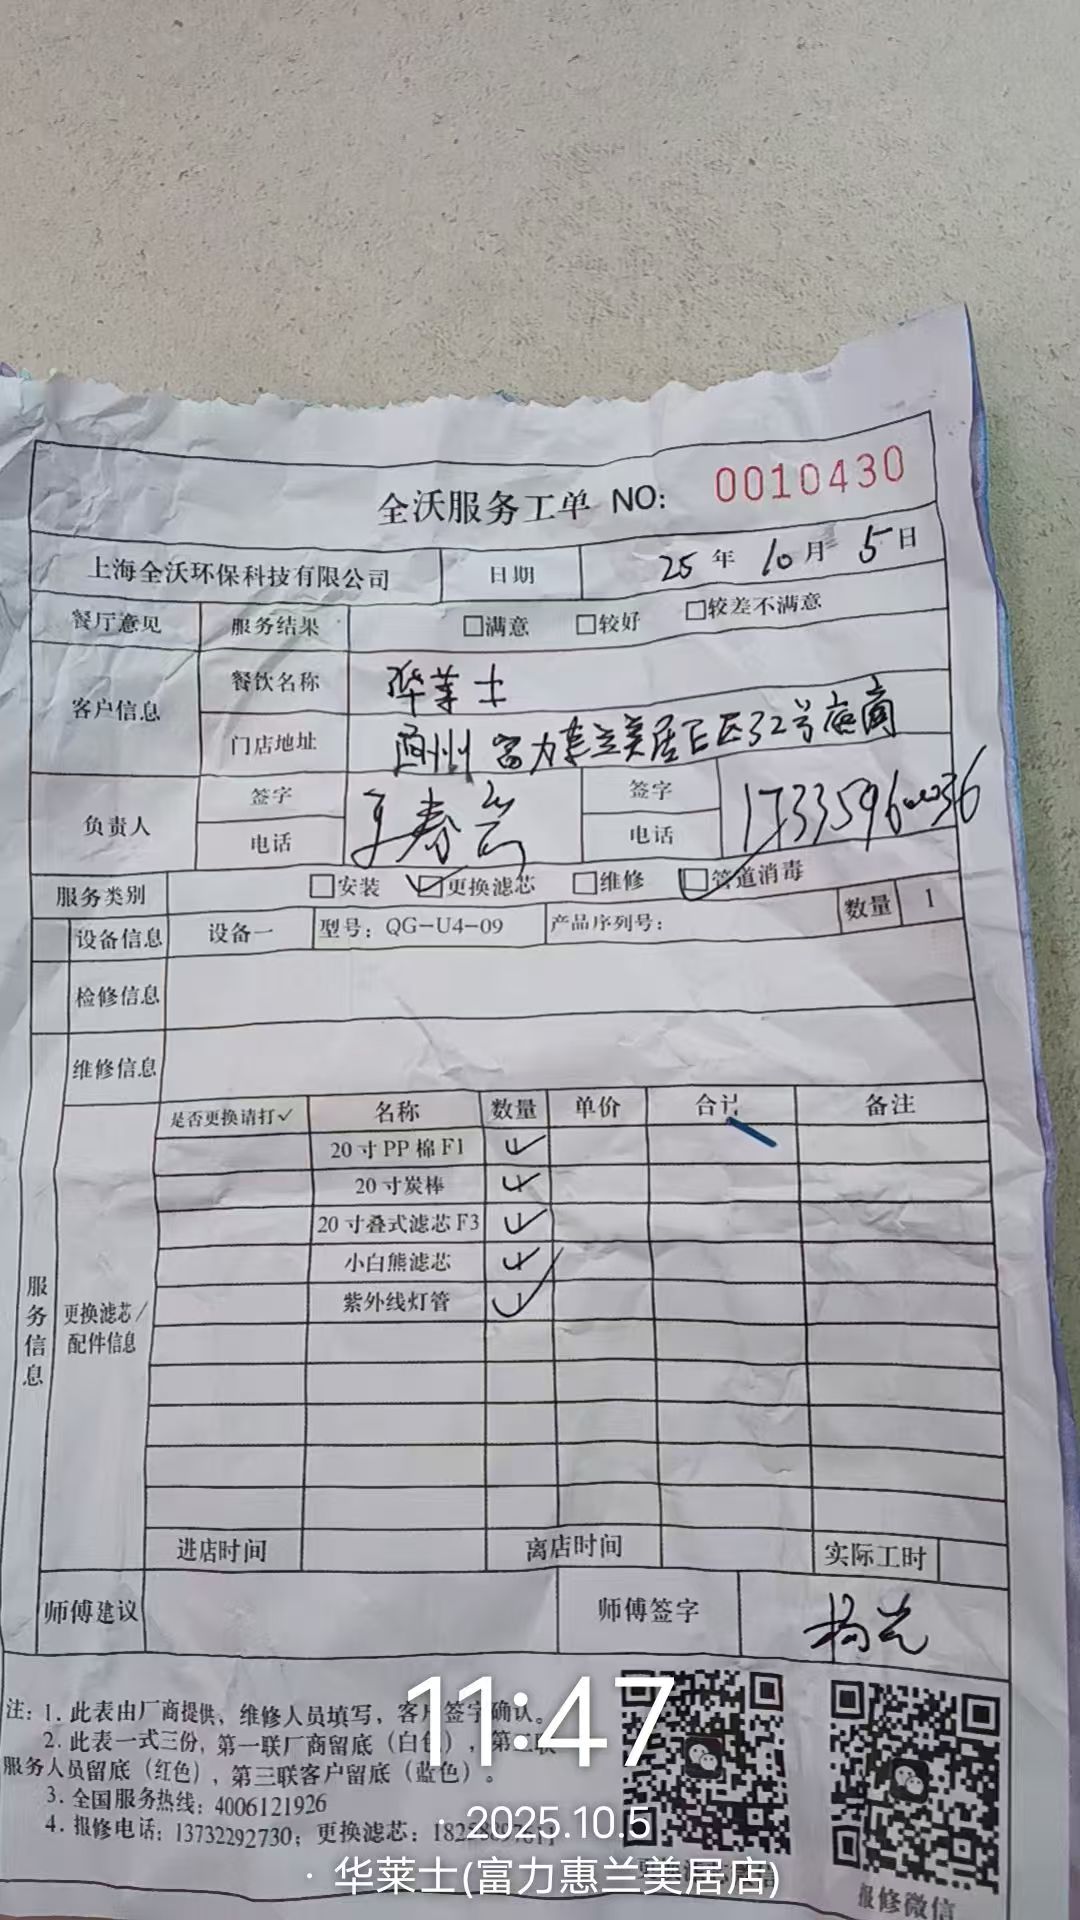 全沃服务工单 NO: 0010430
上海全沃环保科技有限公司 日期 25年10月5日
餐厅意见 服务结果 □满意 □较好 □较差不满意
客户信息 餐饮名称 华莱士
门店地址 富力惠兰美居E区32号底商
负责人 签字 王春 签字
电话 电话
服务类别 □安装 ☑更换滤芯 □维修 ☑管道消毒
设备信息 设备一 型号：QG-U4-09 产品序列号： 数量 1
检修信息
维修信息
是否更换请打✓ 名称 数量 单价 合计 备注
20寸PP棉F1 ✓
20寸炭棒 ✓
20寸叠式滤芯F3 ✓
小白熊滤芯 ✓
紫外线灯管 ✓
服务信息
更换滤芯/
配件信息
进店时间 离店时间 实际工时
师傅建议 师傅签字 杨光
注：1. 此表由厂商提供，维修人员填写，客户签字确认。
2. 此表一式三份，第一联厂商留底（白色），第二联
服务人员留底（红色），第三联客户留底（蓝色）。
3. 全国服务热线：4006121926
4. 报修电话：13732292730；更换滤芯：
报修微信
11:47
· 2025.10.5
· 华莱士(富力惠兰美居店)